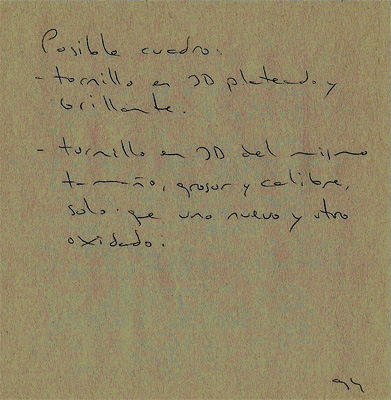 Posible cuadro:
- tornillo en 3D plateado y
brillante.
- tornillo en 3D del mismo
tamaño, grosor y calibre,
solo que uno nuevo y otro
oxidado.
94